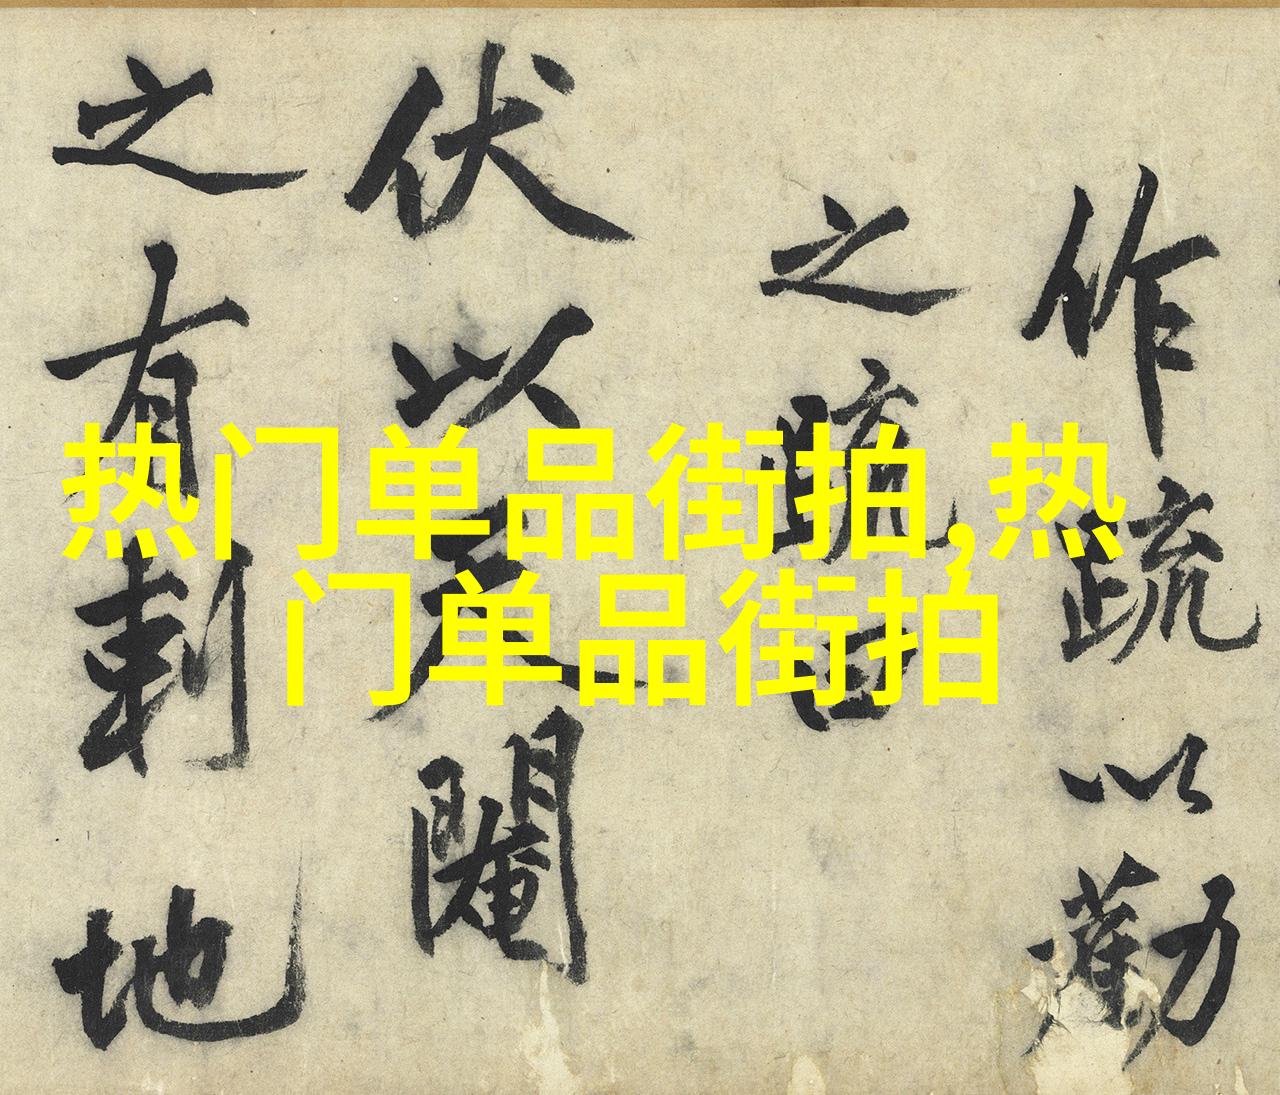 作疏以勸
之疏曰
伏以天閹
之有刺地
热门单品街拍,热
门单品街拍